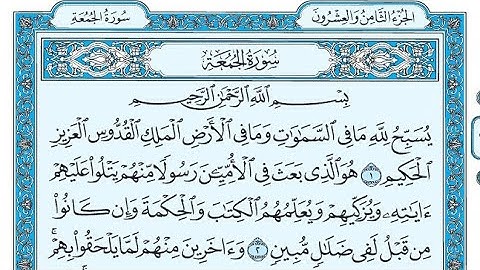 سُورَةُ الجُمُعَةِ
الجُزْءُ الثَّامِنُ وَالعِشْرُونَ
سُورَةُ الجُمُعَةِ
بِسْمِ ٱللَّهِ ٱلرَّحْمَٰنِ ٱلرَّحِيمِ
يُسَبِّحُ لِلَّهِ مَا فِي ٱلسَّمَٰوَٰتِ وَمَا فِي ٱلْأَرْضِ ٱلْمَلِكِ ٱلْقُدُّوسِ ٱلْعَزِيزِ
ٱلْحَكِيمِ ١ هُوَ ٱلَّذِي بَعَثَ فِي ٱلْأُمِّيِّـۧنَ رَسُولًا مِّنْهُمْ يَتْلُوا۟ عَلَيْهِمْ
ءَايَٰتِهِۦ وَيُزَكِّيهِمْ وَيُعَلِّمُهُمُ ٱلْكِتَٰبَ وَٱلْحِكْمَةَ وَإِن كَانُوا۟
مِن قَبْلُ لَفِي ضَلَٰلٍ مُّبِينٍ ٢ وَءَاخَرِينَ مِنْهُمْ لَمَّا يَلْحَقُوا۟ بِهِمْ ۚ